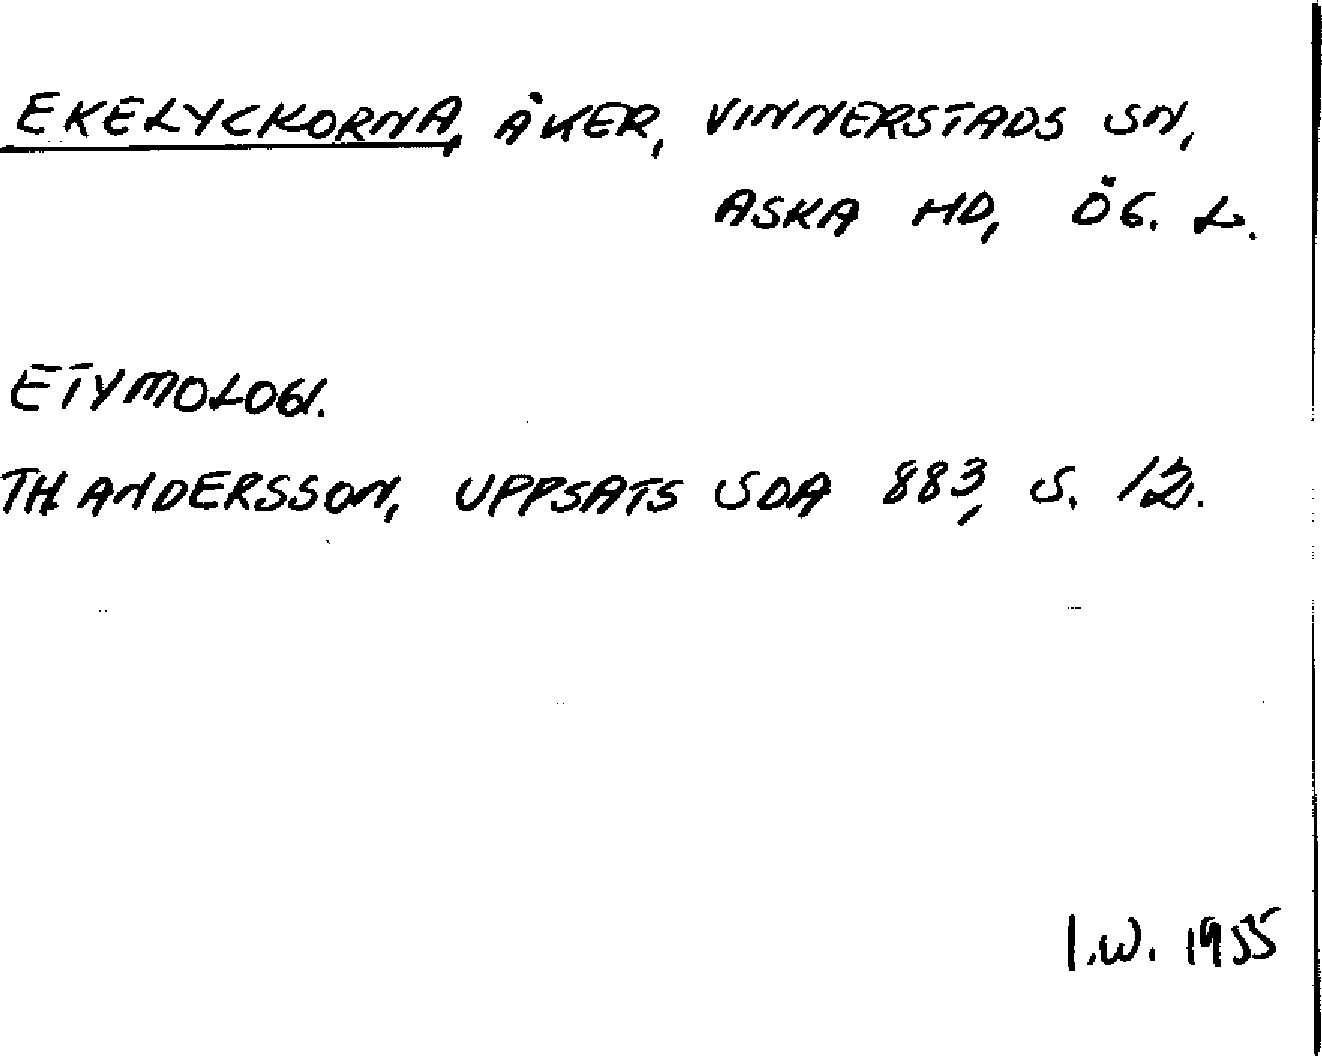 EKELYCKORNA, ÅKER, VINNERSTADS SN,
ASKA HD, ÖG. L.
ETYMOLOGI.
TH. ANDERSSON, UPPSATS SOA 883, S. 12.
I.W. 1955